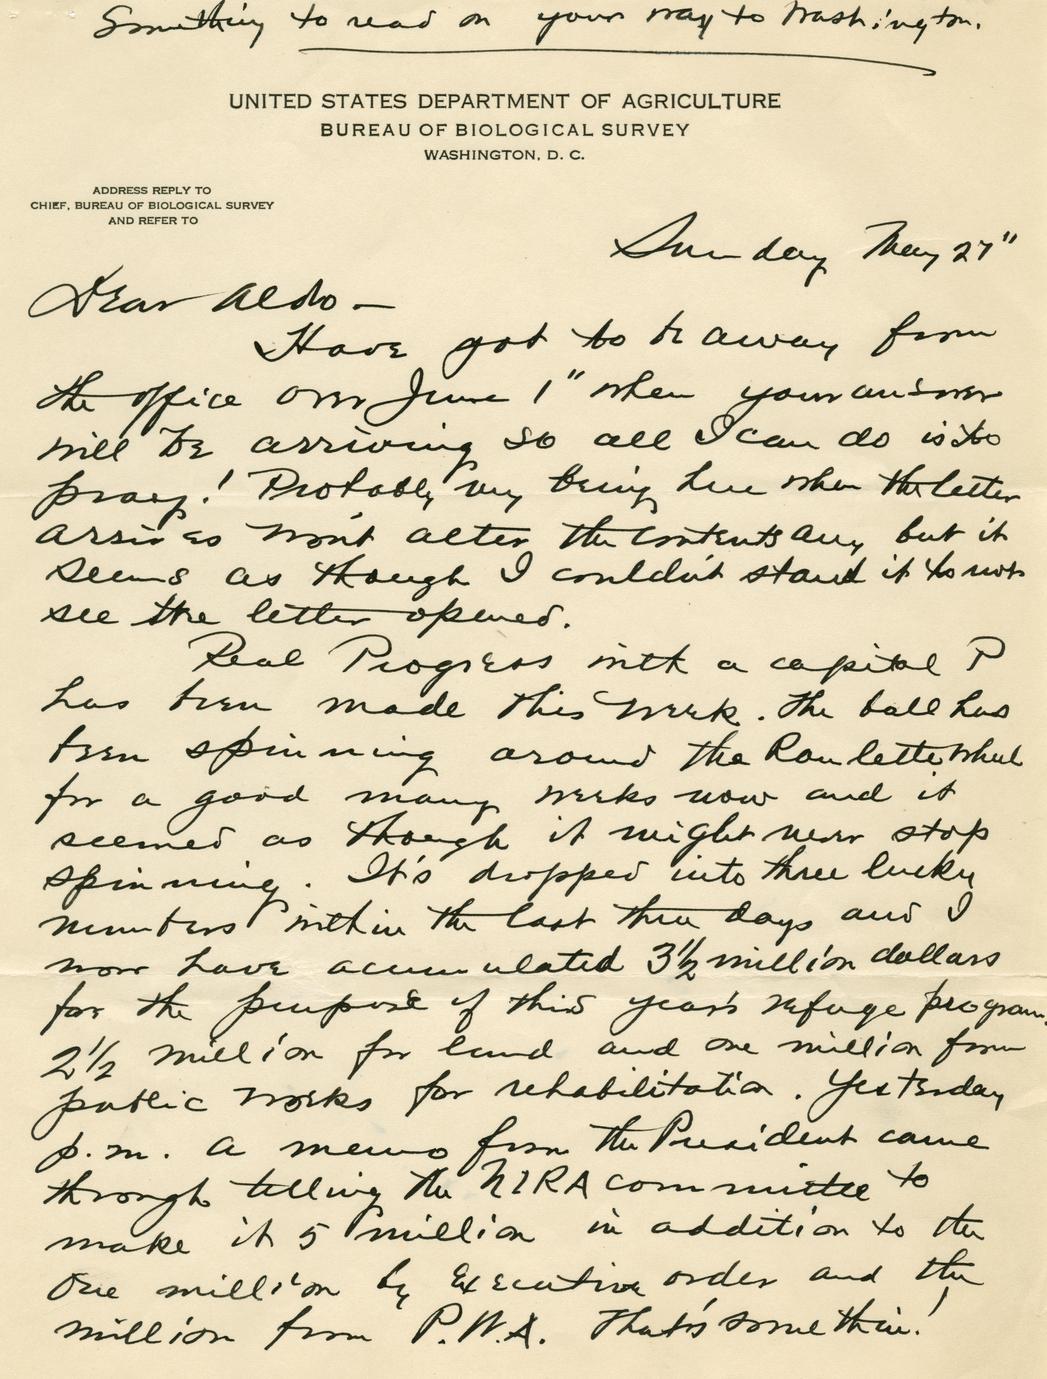 Something to read on your way to Washington.
UNITED STATES DEPARTMENT OF AGRICULTURE
BUREAU OF BIOLOGICAL SURVEY
WASHINGTON, D. C.
ADDRESS REPLY TO
CHIEF, BUREAU OF BIOLOGICAL SURVEY
AND REFER TO
Sunday May 27"
Dear Aldo —
Have got to be away from
the office over June 1" when your answer
will be arriving so all I can do is to
pray! Probably my being here when the letter
arrives won't alter the contents any but it
seems as though I couldn't stand it to not
see the letter opened.
Real Progress with a capital P
has been made this week. The ball has
been spinning around the Roulette wheel
for a good many weeks now and it
seemed as though it might never stop
spinning. It's dropped into three lucky
numbers within the last three days and I
now have acumulated 3½ million dollars
for the purpose of this year's refuge program.
2½ million for land and one million from
public works for rehabilitation. Yesterday
p.m. a memo from the President came
through telling the NIRA committee to
make it 5 million in addition to the
one million by Executive order and the
million from P.W.A. That's somethin!